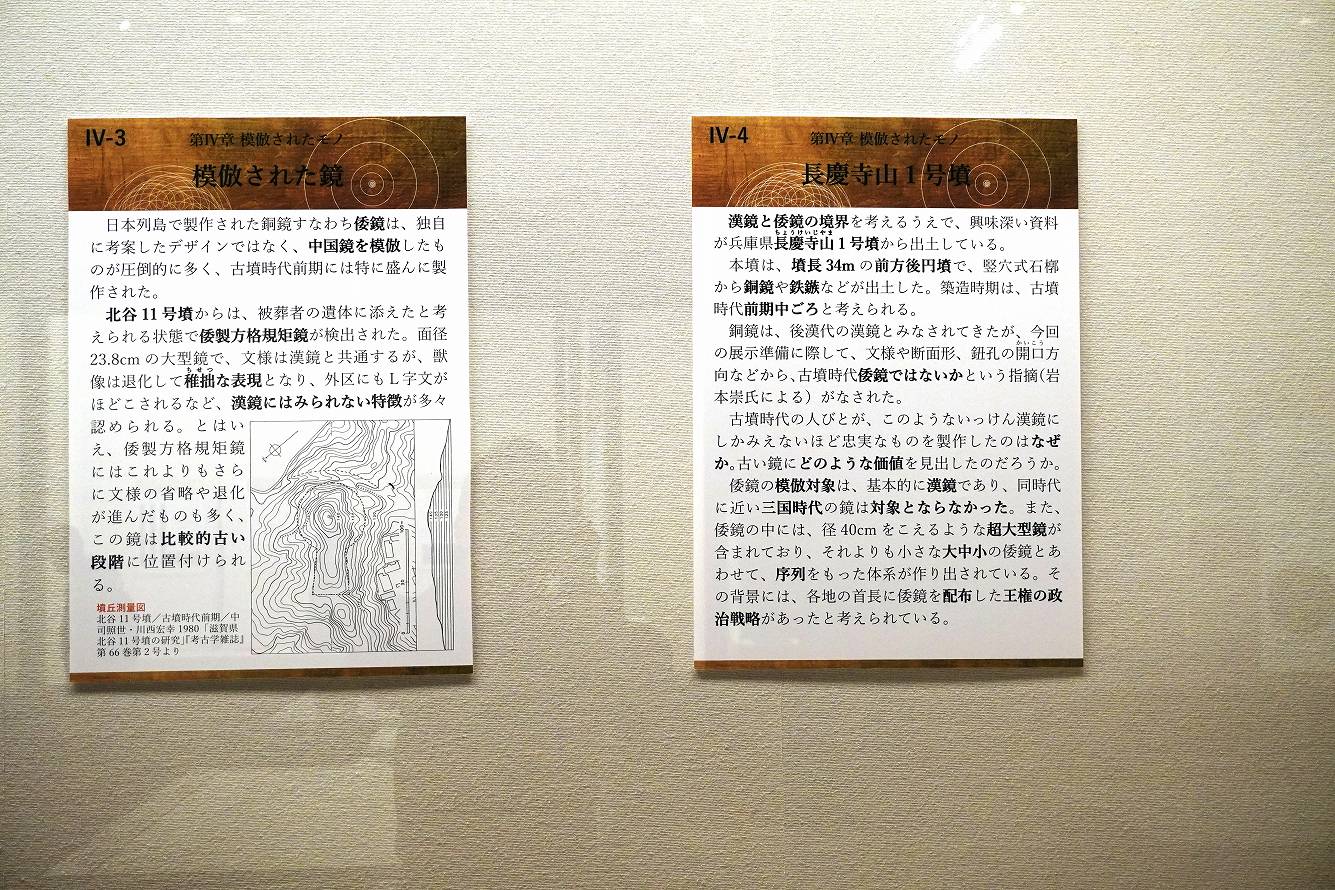 IV-3
第Ⅳ章 模倣されたモノ
模倣された鏡
日本列島で製作された銅鏡すなわち倭鏡は、独自
に考案したデザインではなく、中国鏡を模倣したも
のが圧倒的に多く、古墳時代前期には特に盛んに製
作された。
北谷11号墳からは、被葬者の遺体に添えたと考
えられる状態で倭製方格規矩鏡が検出された。面径
23.8cmの大型鏡で、文様は漢鏡と共通するが、獣
ちせつ
像は退化して稚拙な表現となり、外区にもL字文が
ほどこされるなど、漢鏡にはみられない特徴が多々
認められる。とはい
え、倭製方格規矩鏡
にはこれよりもさら
に文様の省略や退化
が進んだものも多く、
この鏡は比較的古い
段階に位置付けられ
る。
墳丘測量図
北谷11号墳／古墳時代前期／中
司照世・川西宏幸1980「滋賀県
北谷11号墳の研究」『考古学雑誌』
第66巻第2号より
IV-4
第Ⅳ章 模倣されたモノ
長慶寺山1号墳
漢鏡と倭鏡の境界を考えるうえで、興味深い資料
ちょうけいじやま
が兵庫県長慶寺山1号墳から出土している。
本墳は、墳長34mの前方後円墳で、竪穴式石槨
から銅鏡や鉄鏃などが出土した。築造時期は、古墳
時代前期中ごろと考えられる。
銅鏡は、後漢代の漢鏡とみなされてきたが、今回
かいこう
の展示準備に際して、文様や断面形、鈕孔の開口方
向などから、古墳時代倭鏡ではないかという指摘（岩
本崇氏による）がなされた。
古墳時代の人びとが、このようないっけん漢鏡に
しかみえないほど忠実なものを製作したのはなぜ
か。古い鏡にどのような価値を見出したのだろうか。
倭鏡の模倣対象は、基本的に漢鏡であり、同時代
に近い三国時代の鏡は対象とならなかった。また、
倭鏡の中には、径40cmをこえるような超大型鏡が
含まれており、それよりも小さな大中小の倭鏡とあ
わせて、序列をもった体系が作り出されている。そ
の背景には、各地の首長に倭鏡を配布した王権の政
治戦略があったと考えられている。